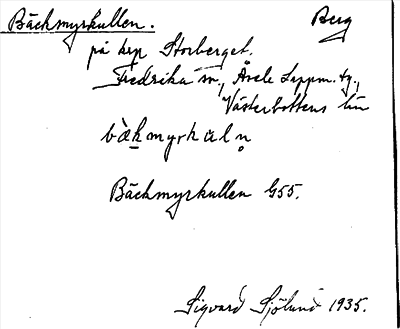 Bäckmyrkullen. Berg
på krp Storberget.
Fredrika sn., Åsele Lappm. tg.,
Västerbottens län
bä̀k̲myrkul̥n̥
Bäckmyrkullen G55.
Sigvard Sjölund 1935.